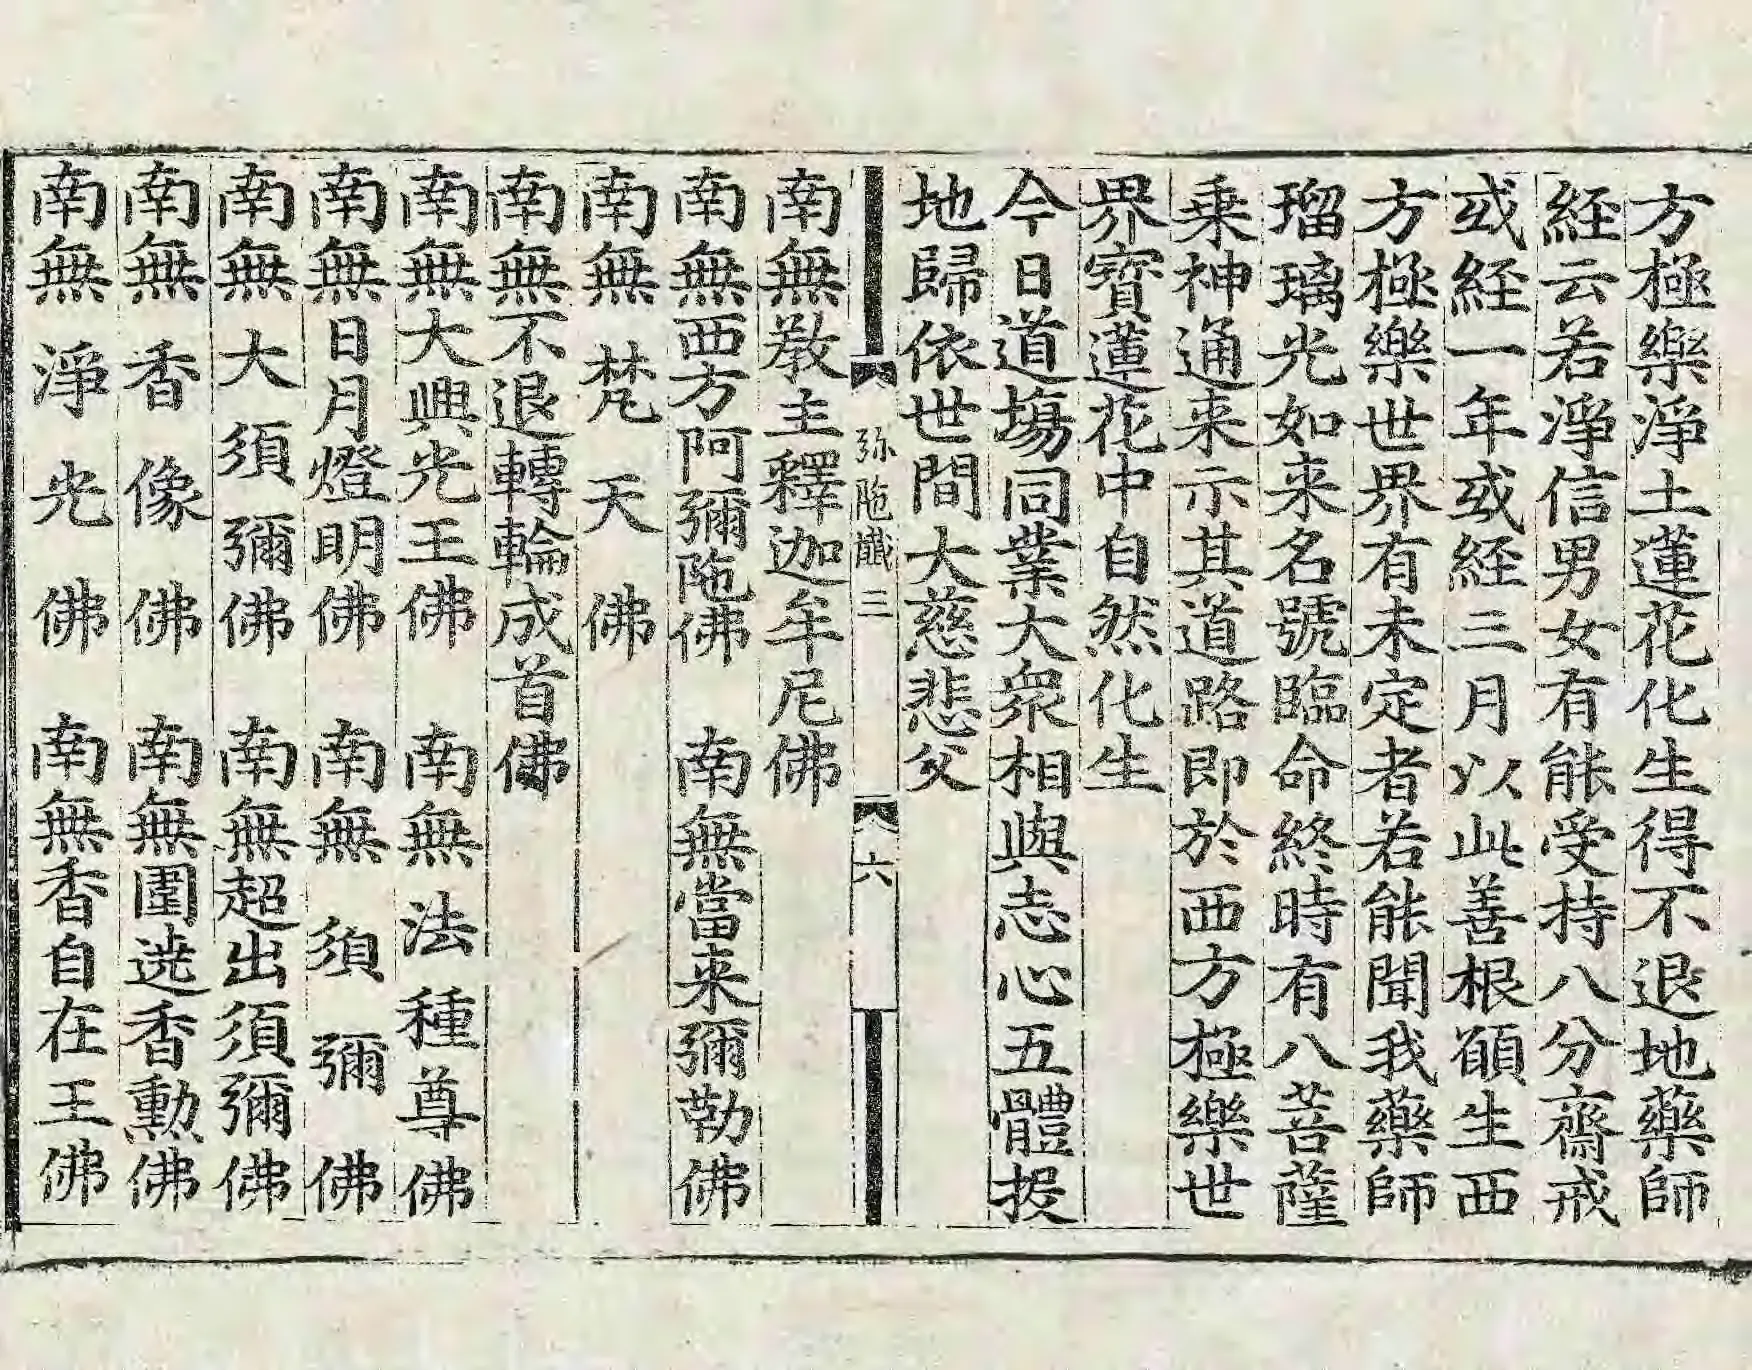 方極樂淨土蓮花化生得不退地藥師
経云若淨信男女有能受持八分齋戒
或経一年或経三月以此善根願生西
方極樂世界有未定者若能聞我藥師
瑠璃光如来名號臨命終時有八菩薩
乗神通来示其道路即於西方極樂世
界寳蓮花中自然化生
今日道塲同業大衆相與志心五體投
地歸依世間大慈悲父
弥陁懺三 六
南無教主釋迦牟尼佛
南無西方阿彌陁佛 南無當来彌勒佛
南無梵天佛
南無不退轉輪成首佛
南無大興光王佛 南無法種尊佛
南無日月燈明佛 南無須彌佛
南無大須彌佛 南無超出須彌佛
南無香像佛 南無圍遶香勳佛
南無淨光佛 南無香自在王佛